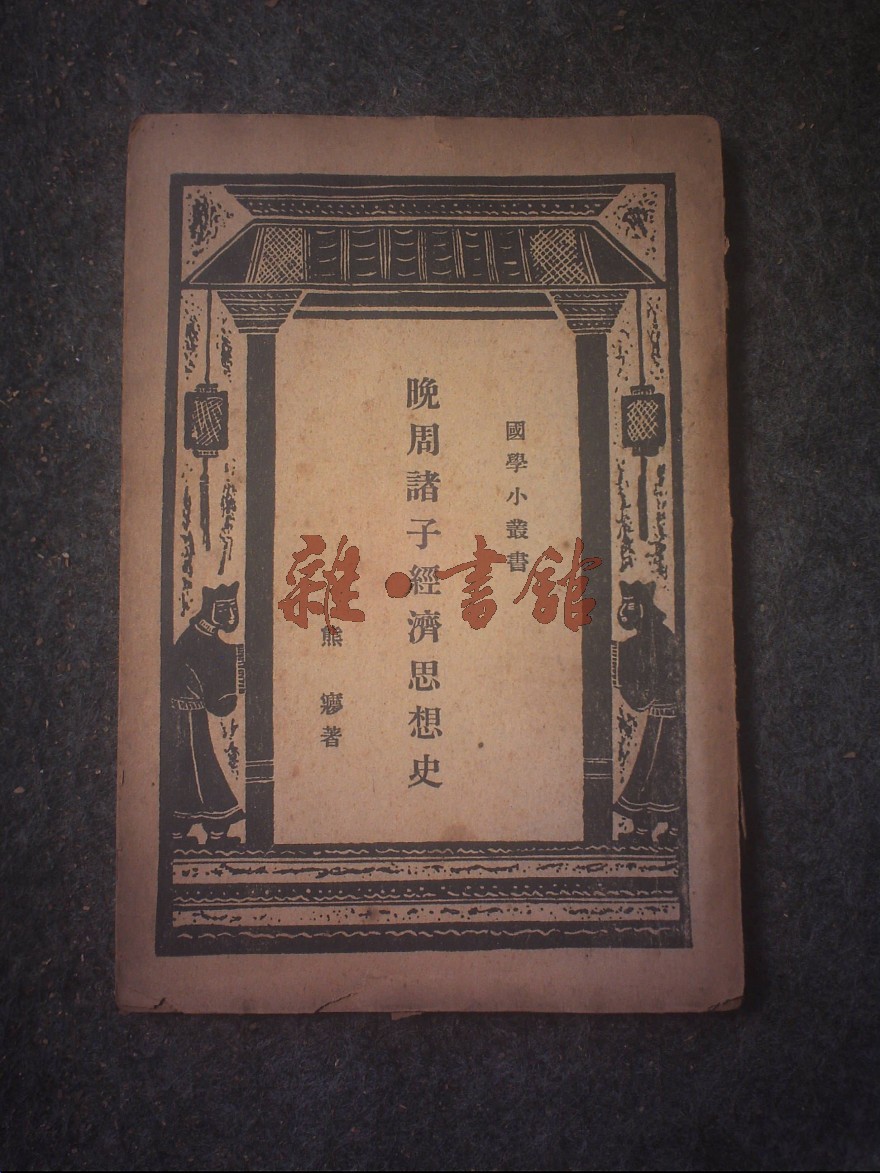 國學小叢書
晚周諸子經濟思想史
熊㾕著
雜·書館